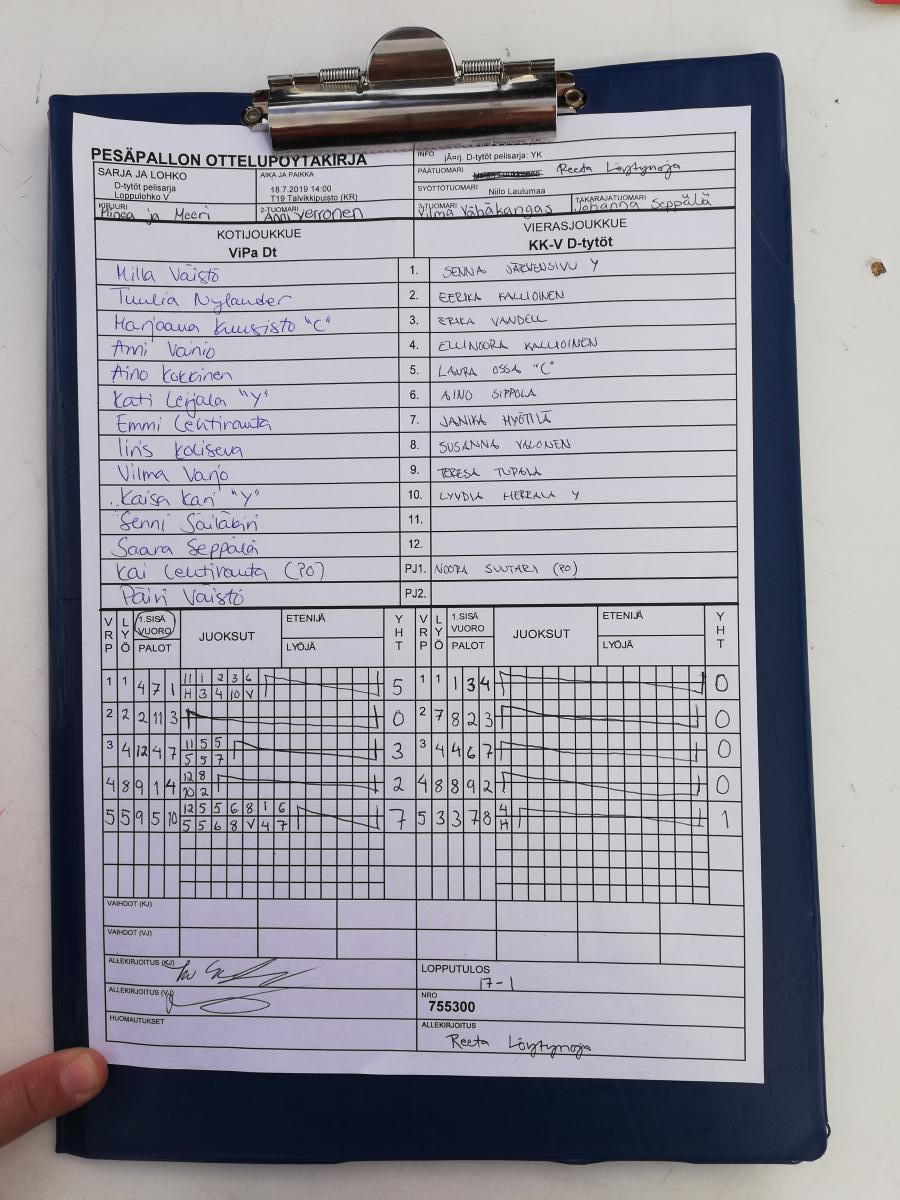 PESÄPALLON OTTELUPÖYTÄKIRJA
INFO jÄ¤rj. D-tytöt pelisarja: YK
SARJA JA LOHKO
D-tytöt pelisarja
Loppulohko V
AIKA JA PAIKKA
18.7.2019 14:00
T19 Talvikkipuisto (KR)
PÄÄTUOMARI Reeta Löytynoja
SYÖTTÖTUOMARI Niilo Laulumaa
KIRJURI Minea ja Meeri
2-TUOMARI Anni Verronen
3-TUOMARI Vilma Vähäkangas
TAKARAJATUOMARI Johanna Seppälä
KOTIJOUKKUE
ViPa Dt
VIERASJOUKKUE
KK-V D-tytöt
Milla Väistö 1. SENNA JÄRVENSIVU Y
Tuulia Nylander 2. EERIKA KALLIOINEN
Marjaana Kuusisto "C" 3. ERIKA VANDELL
Anni Vainio 4. ELLINOORA KALLIOINEN
Aino Kokkinen 5. LAURA OSSA "C"
Kati Lerjala "Y" 6. AINO SIPPOLA
Emmi Lehtiranta 7. JANIKA MYÖTILÄ
Iiris Koliseva 8. SUSANNA VALONEN
Vilma Varjo 9. TERESA TUPALA
Kaisa Kari "Y" 10. LYYDIA HERRALA Y
Senni Säiläkiri 11.
Saara Seppälä 12.
Kai Lehtiranta (PO) PJ1. NOORA SUUTARI (PO)
Päivi Väistö PJ2.
VRP LYÖ 1.SISÄ VUORO PALOT JUOKSUT ETENIJÄ LYÖJÄ YHT VRP LYÖ 1.SISÄ VUORO PALOT JUOKSUT ETENIJÄ LYÖJÄ YHT
11 1 2 3 6
1 1 4 7 1 5 1 1 1 3 4 0
H 3 4 10 V
2 2 2 11 3 0 2 7 8 2 3 0
11 5 5
3 4 12 4 7 3 3 4 4 6 7 0
5 5 7
12 8
4 8 9 1 4 2 4 8 8 9 2 0
10 2
12 5 5 6 8 1 6 4
5 5 9 5 10 7 5 3 3 7 8 1
5 5 6 8 V 4 7 H
VAIHDOT (KJ)
VAIHDOT (VJ)
ALLEKIRJOITUS (KJ)
LOPPUTULOS
17-1
ALLEKIRJOITUS (VJ)
NRO
755300
HUOMAUTUKSET
ALLEKIRJOITUS
Reeta Löytynoja